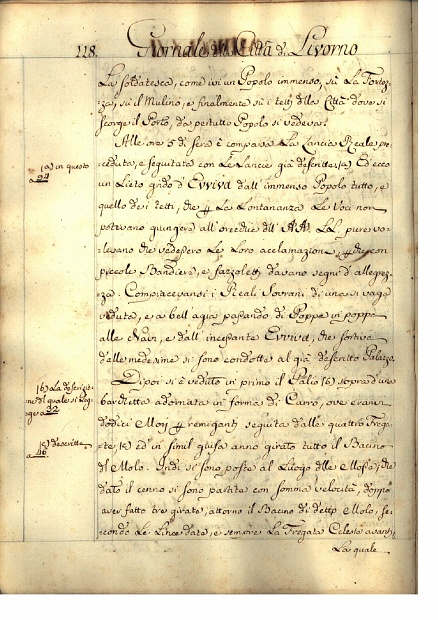 118. Giornale della Città di Livorno
La soldatesca, come ivi un Popolo immenso, sù La Fortez-
za, sù il Mulino, e finalmente sù i tetti della Città dove si
scorge il Porto, da pertutto Popolo si vedeva.
Alle ore 5 di sera è comparsa La Lancia Reale pre-
ceduta, e seguitata con Le Lancie già descritte (a) Ed ecco
(a) in questo
a 54
un Lieto grido d'Evviva dall'immenso Popolo tutto, e
quello de i tetti, che p La Lontananza Le Voci non
potevano giungere all'orecchie dell'AA. LL. pure vo-
levano che vedessero Le Loro acclamazioni, con
piccole Bandiere, e fazzoletti davano segni d'allegrez-
za. Compiacevansi i Reali Sovrani di una sì vaga
veduta, e a bell'agio passando di Poppa in poppa
alle Navi, e dall'incessante Evviva, che sortiva
dalle medesime si sono condotte al già descritto Palazzo.
Dipoi si è veduto in primo il Palio (b) sopra d'una
(b) La descrizio-
ne del quale si leg-
ge a 32
barchetta adornata in forma di Carro, ove erano
dodici Mori p remiganti seguita dalle quattro Frega-
te, (c) ed in simil guisa anno girato tutto il Bacino
(c) descritte
a 46
del Molo. Indi si sono poste al Luogo delle Mosse, che
dato il cenno si sono partite con somma velocità, doppo
aver fatto tre girate, attorno il Bacino di detto Molo, se-
condo Le Linee date, e sempre La Fregata Celeste avanti,
La quale